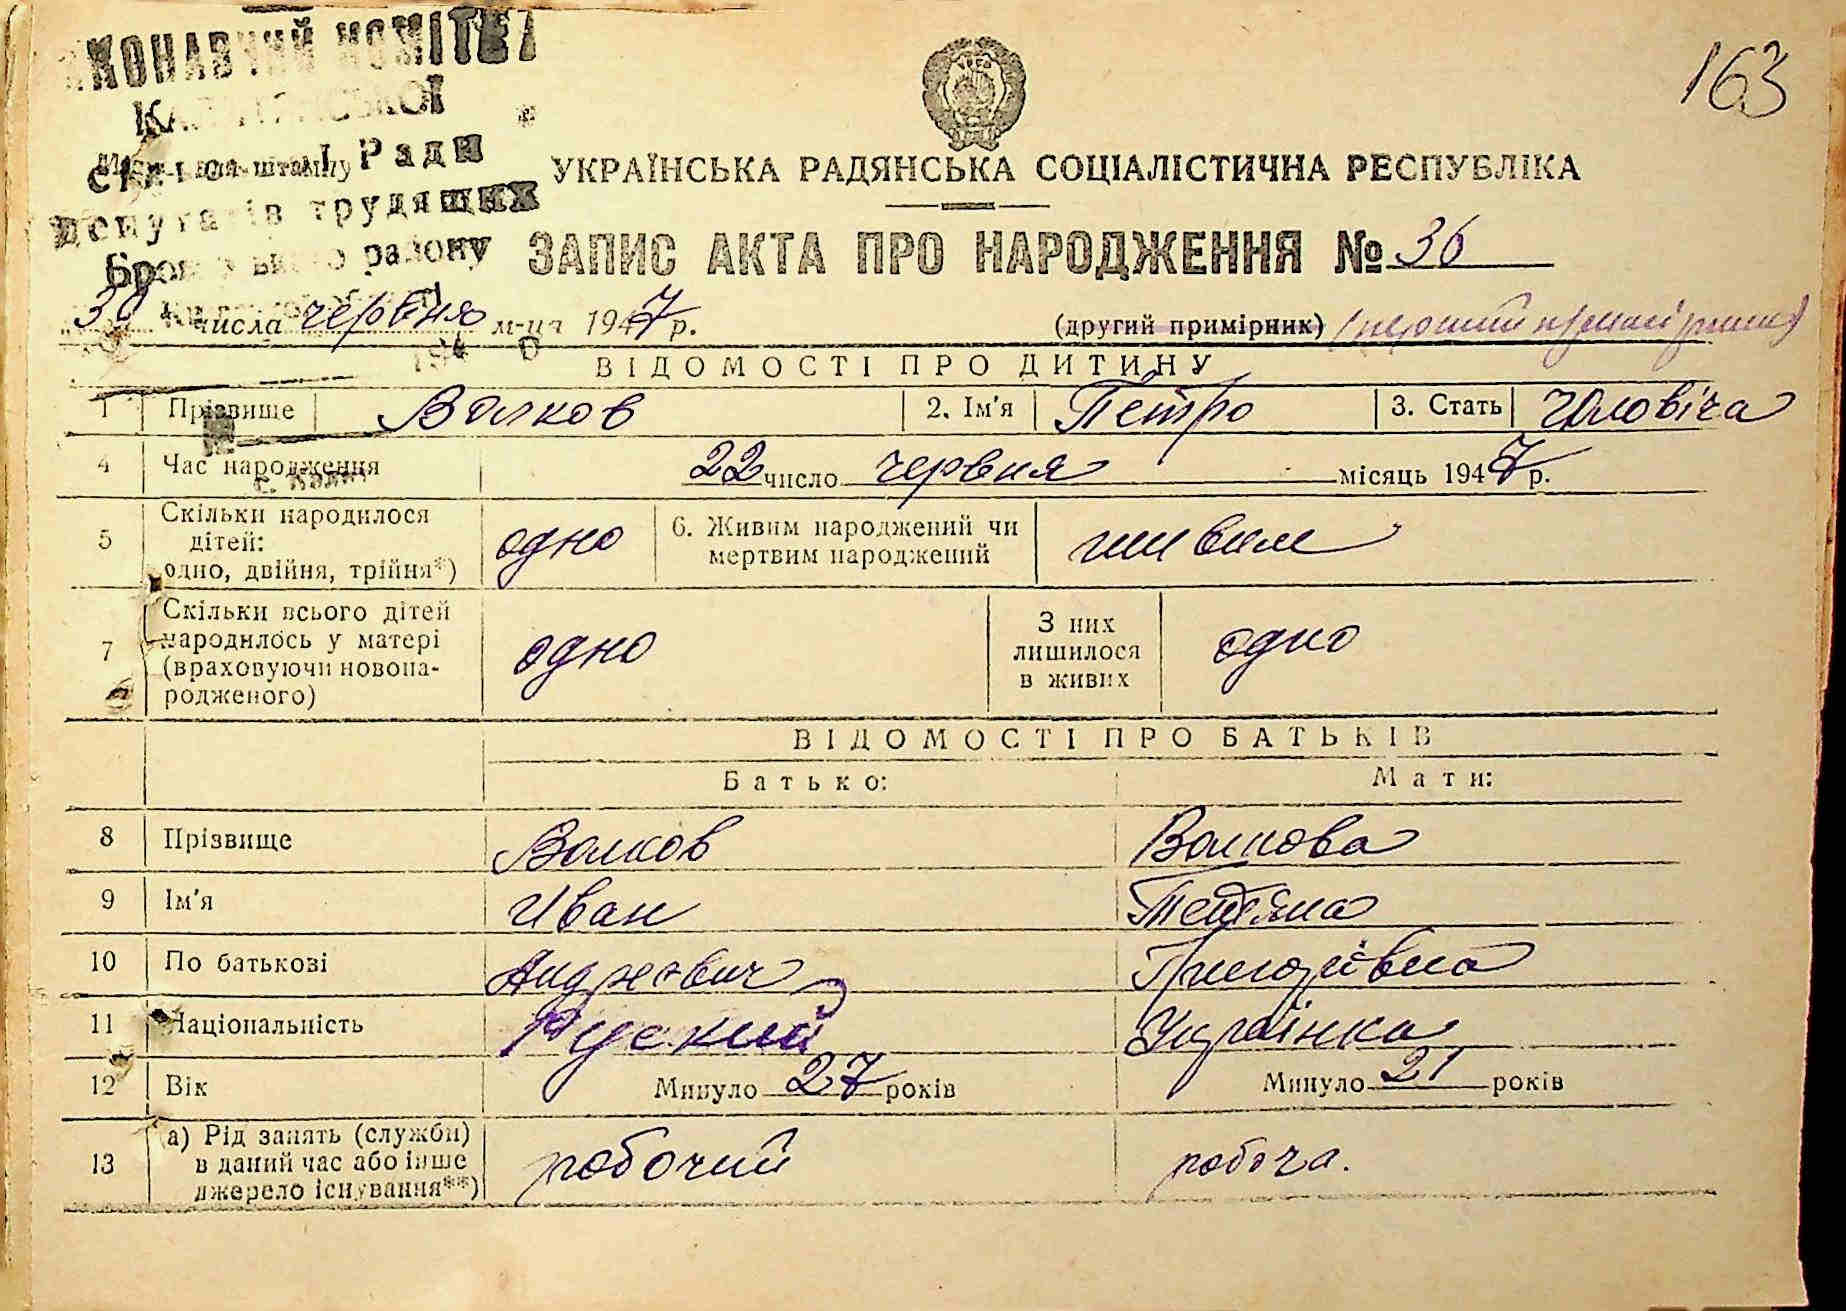 163
КОНАВЧИЙ КОМІТЕТ
Ради
трудящих
району
УКРАЇНСЬКА РАДЯНСЬКА СОЦІАЛІСТИЧНА РЕСПУБЛІКА
ЗАПИС АКТА ПРО НАРОДЖЕННЯ № 36
30 числа червня м-ця 1947 р. (другий примірник) (перший примірник)
ВІДОМОСТІ ПРО ДИТИНУ
1 Прізвище Волков 2. Ім'я Петро 3. Стать чоловіча
4 Час народження 22 число червня місяць 1947 р.
5 Скільки народилося дітей: одно, двійня, трійня*) одно 6. Живим народжений чи мертвим народжений живим
7 Скільки всього дітей народилось у матері (враховуючи новона-родженого) одно З них лишилося в живих одно
ВІДОМОСТІ ПРО БАТЬКІВ
Батько: Мати:
8 Прізвище Волков Волкова
9 Ім'я Иван Тетяна
10 По батькові Андреевич Григорівна
11 Національність Руский Українка
12 Вік Минуло 27 років Минуло 21 років
13 а) Рід занять (служби) в даний час або інше джерело існування**) робочий робоча.